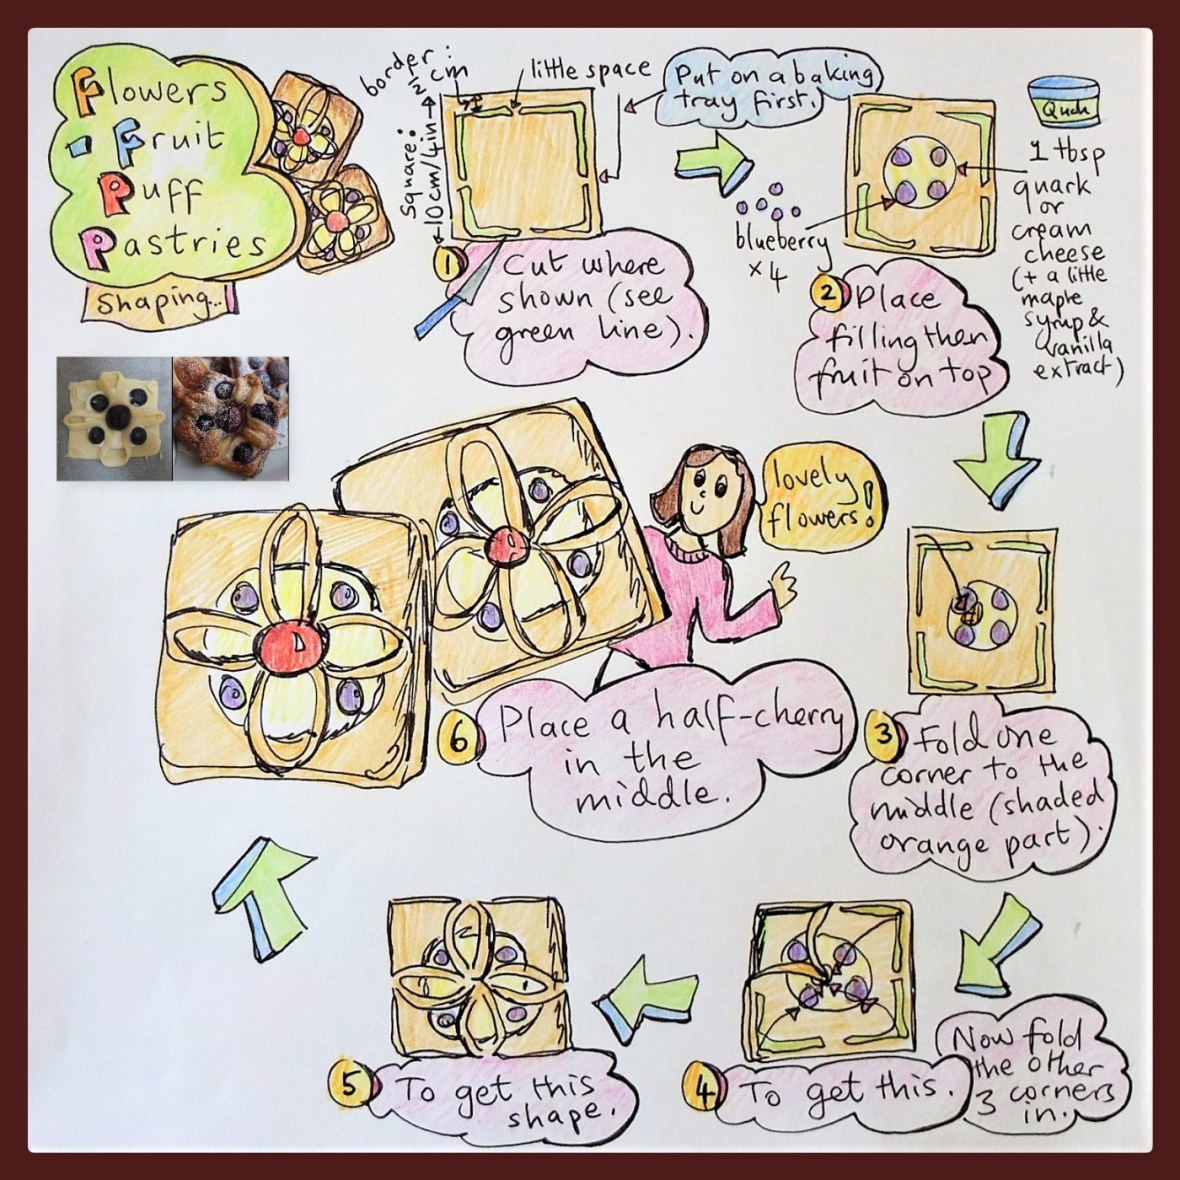 Flowers
- Fruit
Puff
Pastries
Shaping...
border:
½cm
little space
Square:
10cm/4in
Put on a baking
tray first.
1
Cut where
shown (see
green line).
blueberry
x 4
Quark
1 tbsp
quark
or
cream
cheese
(+ a little
maple
syrup &
vanilla
extract)
2
Place
filling then
fruit on top
3
Fold one
corner to the
middle (shaded
orange part).
Now fold
the other
3 corners
in.
4
To get this.
5
To get this
shape.
6
Place a half-cherry
in the
middle.
lovely
flowers!